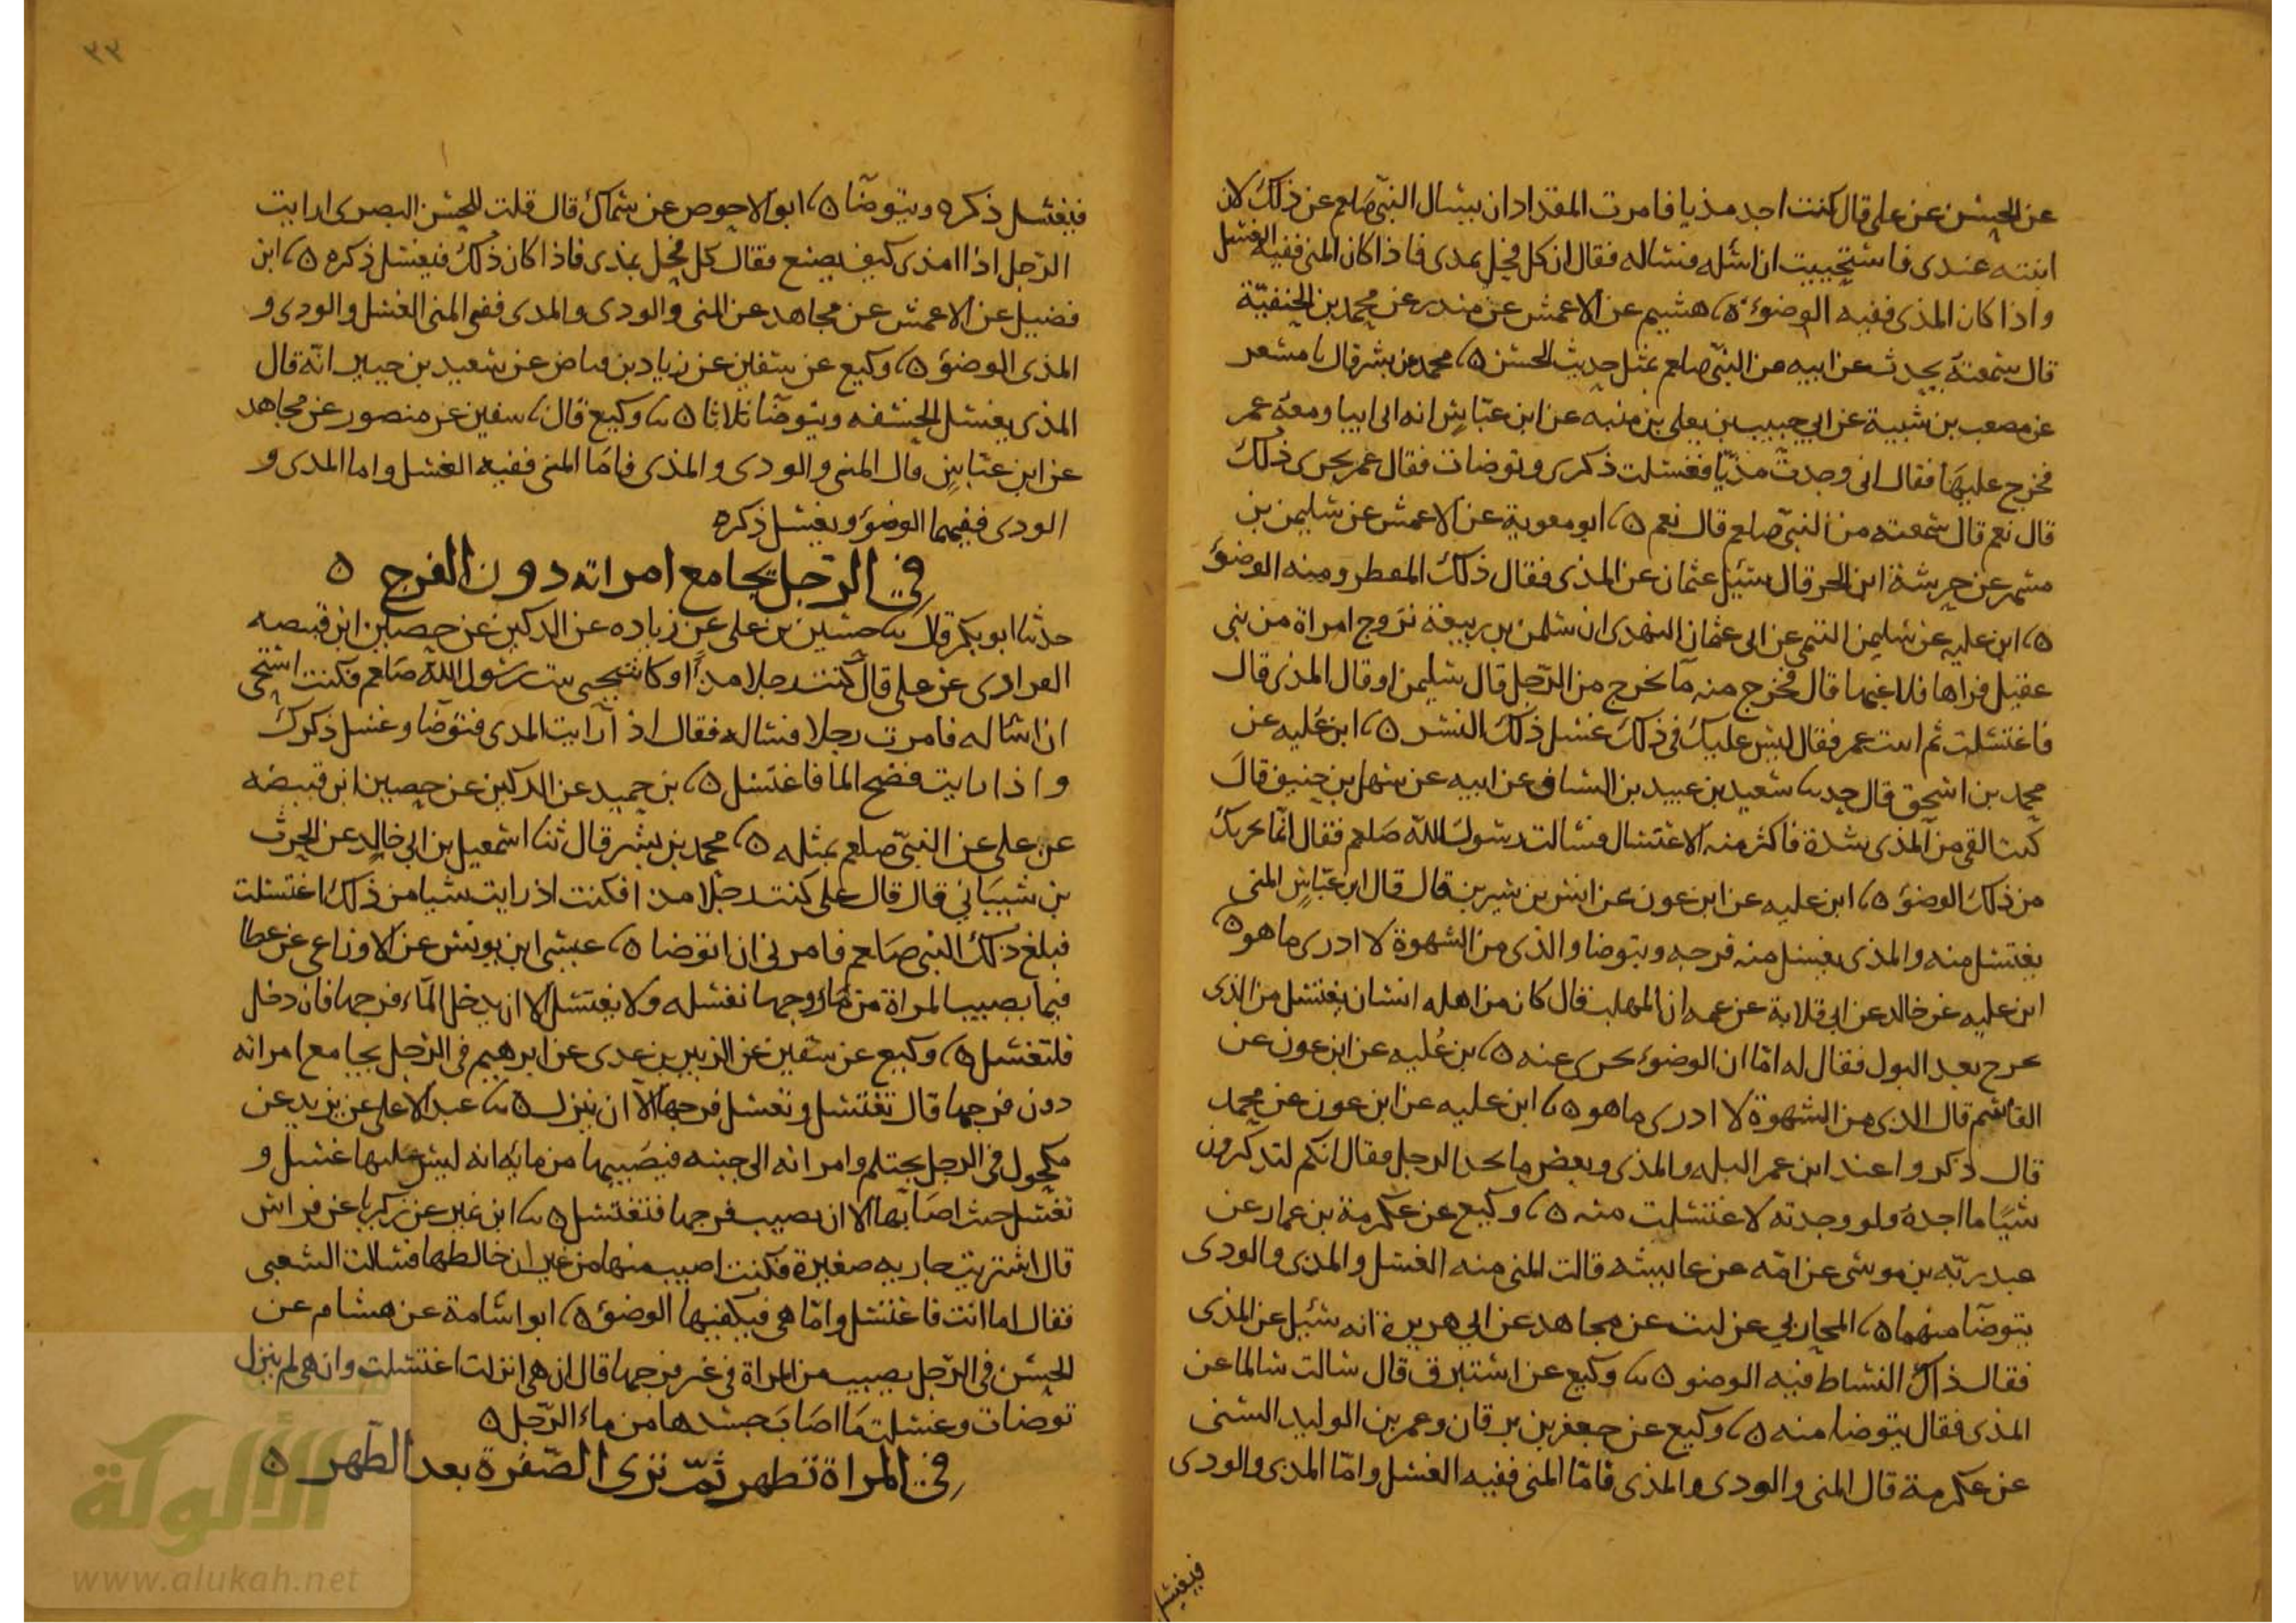 عن الحسن عن على قال كنت اجد مذيا فامرت المقداد ان يسال النبى صلعم عن ذلك لان
ابنته عندى فاستحييت ان اسله فساله فقال ان كل فحل يمدى فاذا كان المنى ففيه الغسل
واذا كان المذى ففيه الوضوء ه هشيم عن الاعمش عن مندر عن محمد بن الحنفية
قال سمعته يحدث عن ابيه من النبى صلعم بمثل حديث الحسن ه محمد بن بشر قال نا مسعر
عن مصعب بن شيبة عن ابى حبيب بن يعلى بن منيه عن ابن عباس انه اتى ابيا ومعه عمر
فخرج عليهما فقال انى وجدت مذيا فغسلت ذكرى وتوضات فقال عمر يجزى ذلك
قال نعم قال سمعته من النبى صلعم قال نعم ه ابو معوية عن الاعمش عن سليمن بن
مسهر عن خرشة ابن الحر قال سئل عثمان عن المذى فقال ذلك المعطر ومنه الوضوء
ه ابن عليه عن سليمن التيمى عن ابى عثمان النهدى ان سلمن بن ربيعة تزوج امراة من بنى
عقيل فراها فلاعبها قال فخرج منه ما يخرج من الرجل قال سليمن او قال المذى قال
فاغتسلت ثم اتيت عمر فقال ليس عليك فى ذلك غسل ذلك النشر ه ابن عليه عن
محمد بن اسحق قال حدثنا سعيد بن عبيد بن السباق عن ابيه عن سهل بن حنيف قال
كنت القى من المذى شدة فاكثر منه الاغتسال فسالت رسول الله صلعم فقال انما يجزيك
من ذلك الوضوء ه ابن عليه عن ابن عون عن انس بن سيرين قال قال ابن عباس المنى
يغتسل منه والمذى يغسل منه فرجه ويتوضا والذى من الشهوة لا ادرى ما هو ه
ابن عليه عن خالد عن ابى قلابة عن عمه ابى المهلب قال كان من اهله انسان يغتسل من الذى
يخرج بعد البول فقال له اما ان الوضوء يجزى عنه ه بن عليه عن ابن عون عن
القاسم قال الذى من الشهوة لا ادرى ما هو ه ابن عليه عن ابن عون عن محمد
قال ذكروا عند ابن عمر البله والمذى وبعض ما يجد الرجل فقال انكم لتذكرون
شيا ما اجده ولو وجدته لاغتسلت منه ه وكيع عن عكرمة بن عمار عن
عبد ربه بن موسى عن امه عن عايشه قالت المنى منه الغسل والمذى والودى
يتوضا منهما ه المحاربى عن ليث عن مجاهد عن ابى هريرة انه سئل عن المذى
فقال ذاك النشاط فيه الوضو ه وكيع عن استبرق قال سالت سالما عن
المذى فقال يتوضا منه ه وكيع عن جعفر بن برقان وعمر بن الوليد الشنى
عن عكرمة قال المنى والودى والمذى فاما المنى ففيه الغسل واما المذى والودى
فيغسل
٣٣
فيغسل ذكره ويتوضا ه ابو الاحوص عن سماك قال قلت للحسن البصرى ارايت
الرجل اذا امذى كيف يصنع فقال كل فحل يمذى فاذا كان ذلك فيغسل ذكره ه ابن
فضيل عن الاعمش عن مجاهد عن المنى والودى والمدى ففى المنى الغسل والودى و
المذى الوضوء ه وكيع عن سفين عن زياد بن فياض عن سعيد بن جبير انه قال
المذى يغسل الحشفه ويتوضا ثلاثا ه وكيع قال سفين عن منصور عن مجاهد
عن ابن عباس قال المنى والودى والمذى فاما المنى ففيه الغسل واما المدى و
الودى ففيهما الوضوء ويغسل ذكره
فى الرجل يجامع امراته دون الفرج ه
حدثنا ابو بكر قال حسين بن على عن زياده عن الركين عن حصين ابن قبيصه
الفرارى عن على قال كنت رجلا مذا وكانت تحتى بنت رسول الله صلعم فكنت استحى
ان اساله فامرت رجلا فساله فقال اذا رايت المدى فتوضا وغسل ذكرك
واذا رايت فضح الما فاغتسل ه بن حميد عن الركين عن حصين ابن قبيصه
عن على عن النبى صلعم بمثله ه محمد بن بشر قال ثنا اسمعيل بن ابى خالد عن الحرث
بن شبيبانى قال قال على كنت رجلا مذا فكنت اذ رايت شيا من ذلك اغتسلت
فبلغ ذلك النبى صلعم فامرنى ان اتوضا ه عيسى ابن يونس عن الاوزاعى عن عطا
فيما يصيب المراة من ما زوجها تغسله ولا يغتسل الا ان يدخل الماء فرجها فان دخل
فلتغتسل ه وكيع عن سفين عن الزبير بن عدى عن ابرهيم فى الرجل يجامع امراته
دون فرجها قال تغتسل وتغسل فرجها الا ان ينزل ه عبد الاعلى عن يزيد عن
مكحول فى الرجل يحتلم وامراته الى جنبه فيصيبها من مايه انه ليس عليها غسل و
تغسل حيث اصابها الا ان يصيب فرجها فتغتسل ه ابن نمير عن زكريا عن فراس
قال اشتريت جاريه صغيرة فكنت اصيب منها من غير ان خالطها فسالت الشعبى
فقال اما انت فاغتسل واما هى فيكفيها الوضوء ه ابو اسامة عن هشام عن
الحسن فى الرجل يصيب من المراة فى غير فرجها قال ان هى انزلت اغتسلت وان هى لم ينزل
توضات وغسلت ما اصاب جسدها من ماء الرجل ه
فى المراة تطهر ثم ترى الصفرة بعد الطهر ه
الألوكة
www.alukah.net